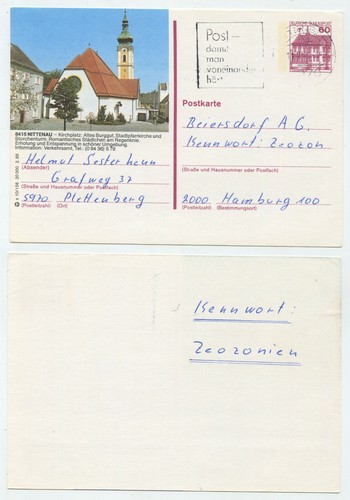 Post –
damit
man
voneinander
hört
60
Postkarte
8415 NITTENAU – Kirchplatz: Altes Burggut, Stadtpfarrkirche und
Storchenturm. Romantisches Städtchen am Regenknie.
Erholung und Entspannung in schöner Umgebung.
Information: Verkehrsamt, Tel.: (0 94 36) 5 79
Helmut Sesterhenn
(Absender)
Grafweg 37
(Straße und Hausnummer oder Postfach)
5970 Plettenberg
(Postleitzahl) (Ort)
Beiersdorf A.G.
Kennwort: Zeozon
(Straße und Hausnummer oder Postfach)
2000 Hamburg 100
(Postleitzahl) (Bestimmungsort)
Kennwort:
Zeozonien